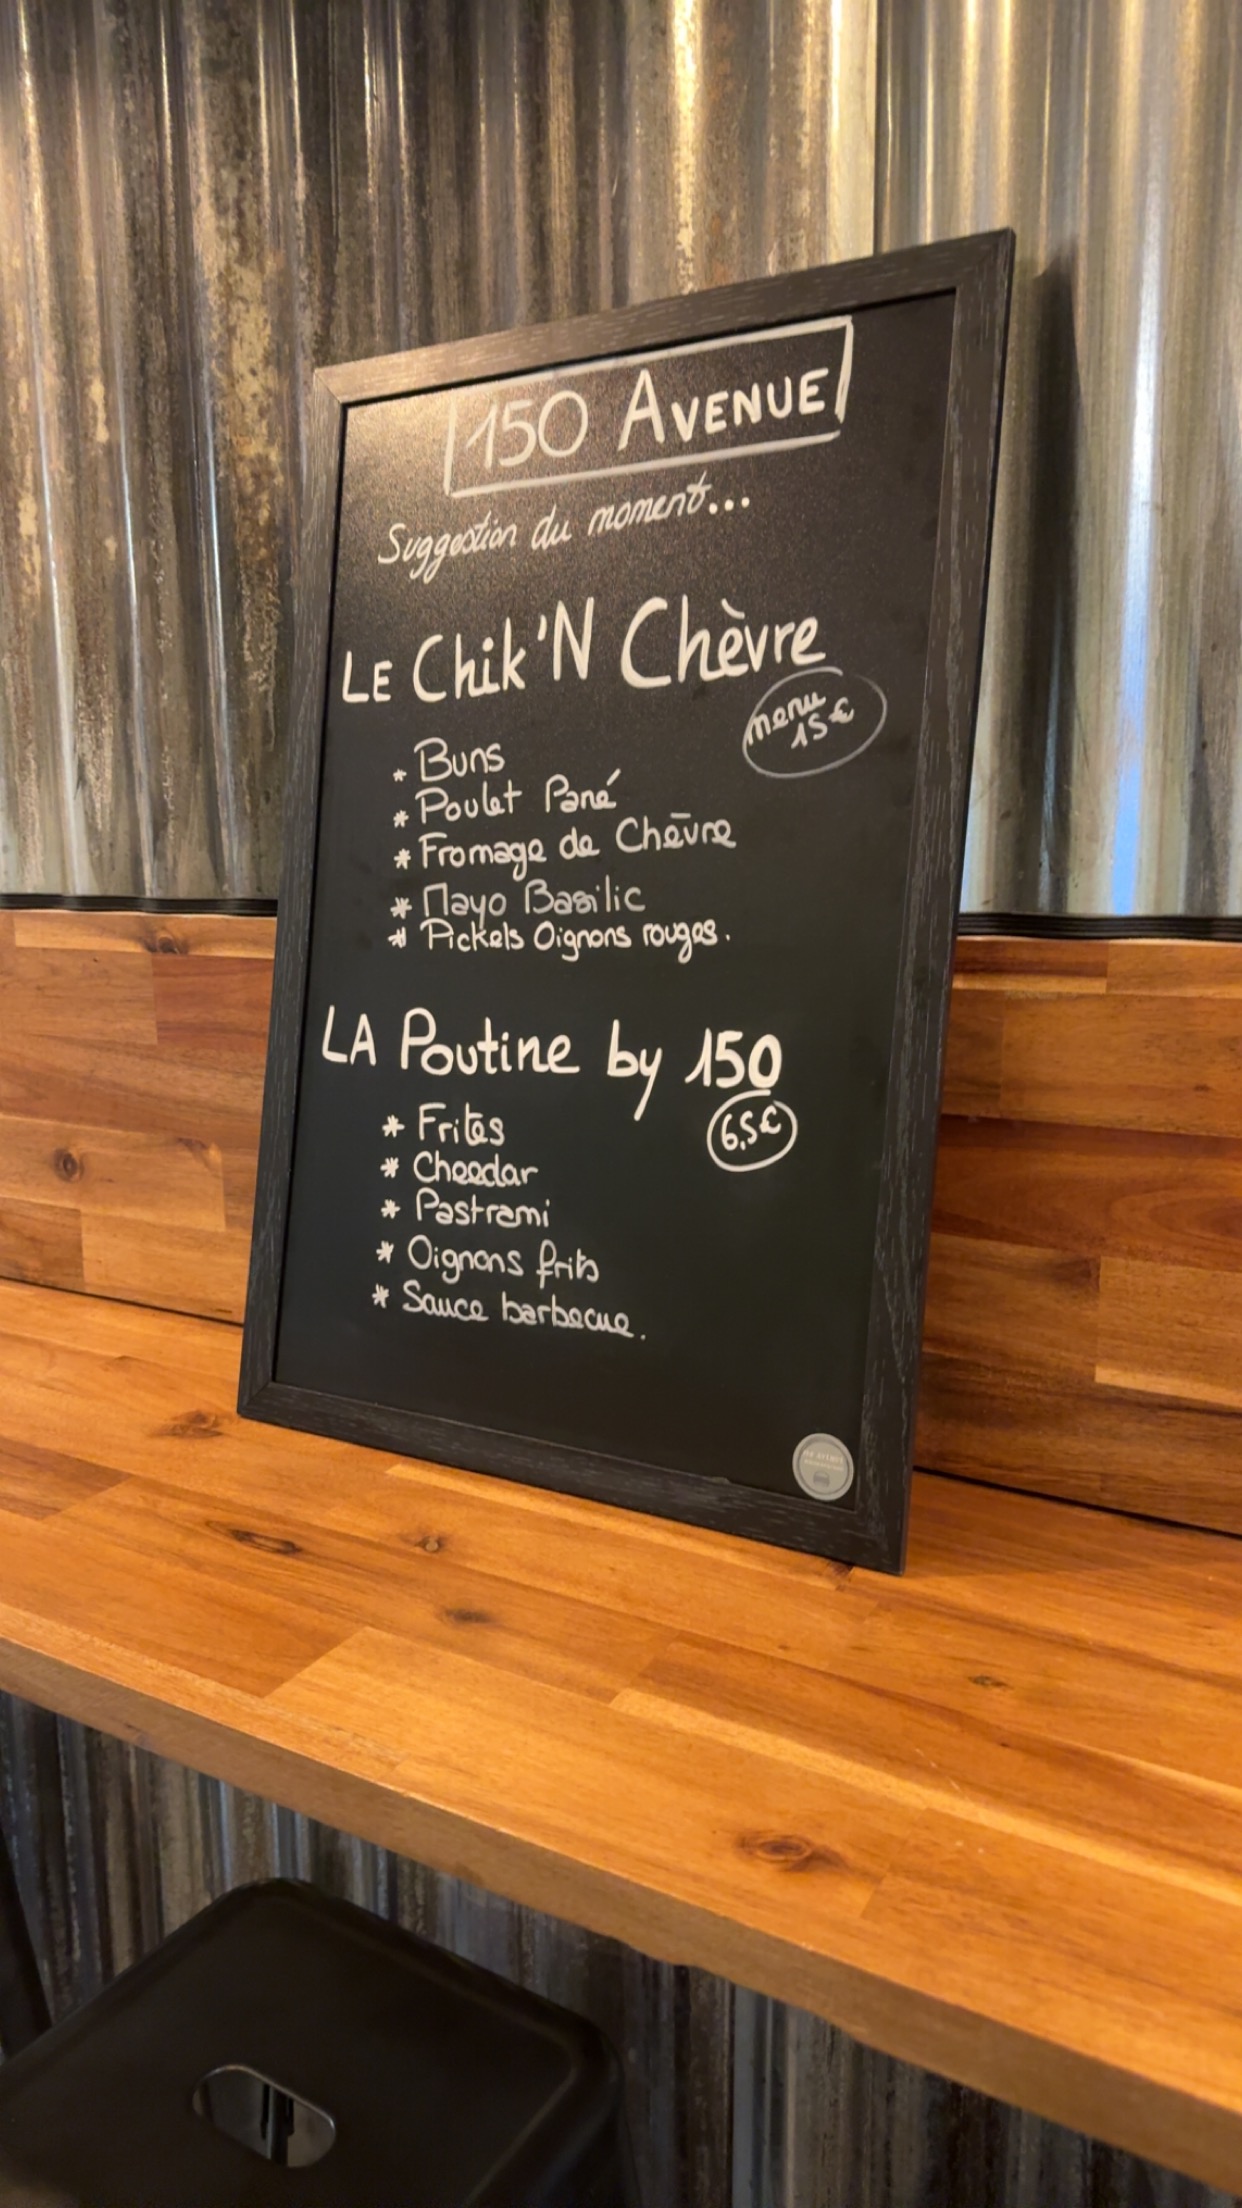 150 AVENUE
Suggestion du moment...
LE Chik'N Chèvre
menu
15€
* Buns
* Poulet Pané
* Fromage de Chèvre
* Mayo Basilic
* Pickels Oignons rouges.
LA Poutine by 150
6,5€
* Frites
* Cheedar
* Pastrami
* Oignons frits
* Sauce barbecue.